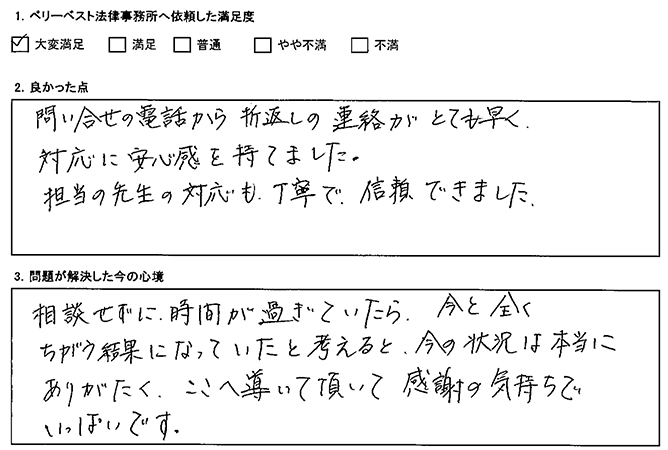 1. ベリーベスト法律事務所へ依頼した満足度
☑ 大変満足 □ 満足 □ 普通 □ やや不満 □ 不満
2. 良かった点
問い合せの電話から 折返しの 連絡が とても早く、
対応に 安心感を 持てました。
担当の先生の対応も、丁寧で、信頼できました。
3. 問題が解決した今の心境
相談せずに、時間が過ぎていたら、今と全く
ちがう結果になっていたと考えると、今の状況は本当に
ありがたく、ここへ導いて頂いて 感謝の気持ちで
いっぱいです。